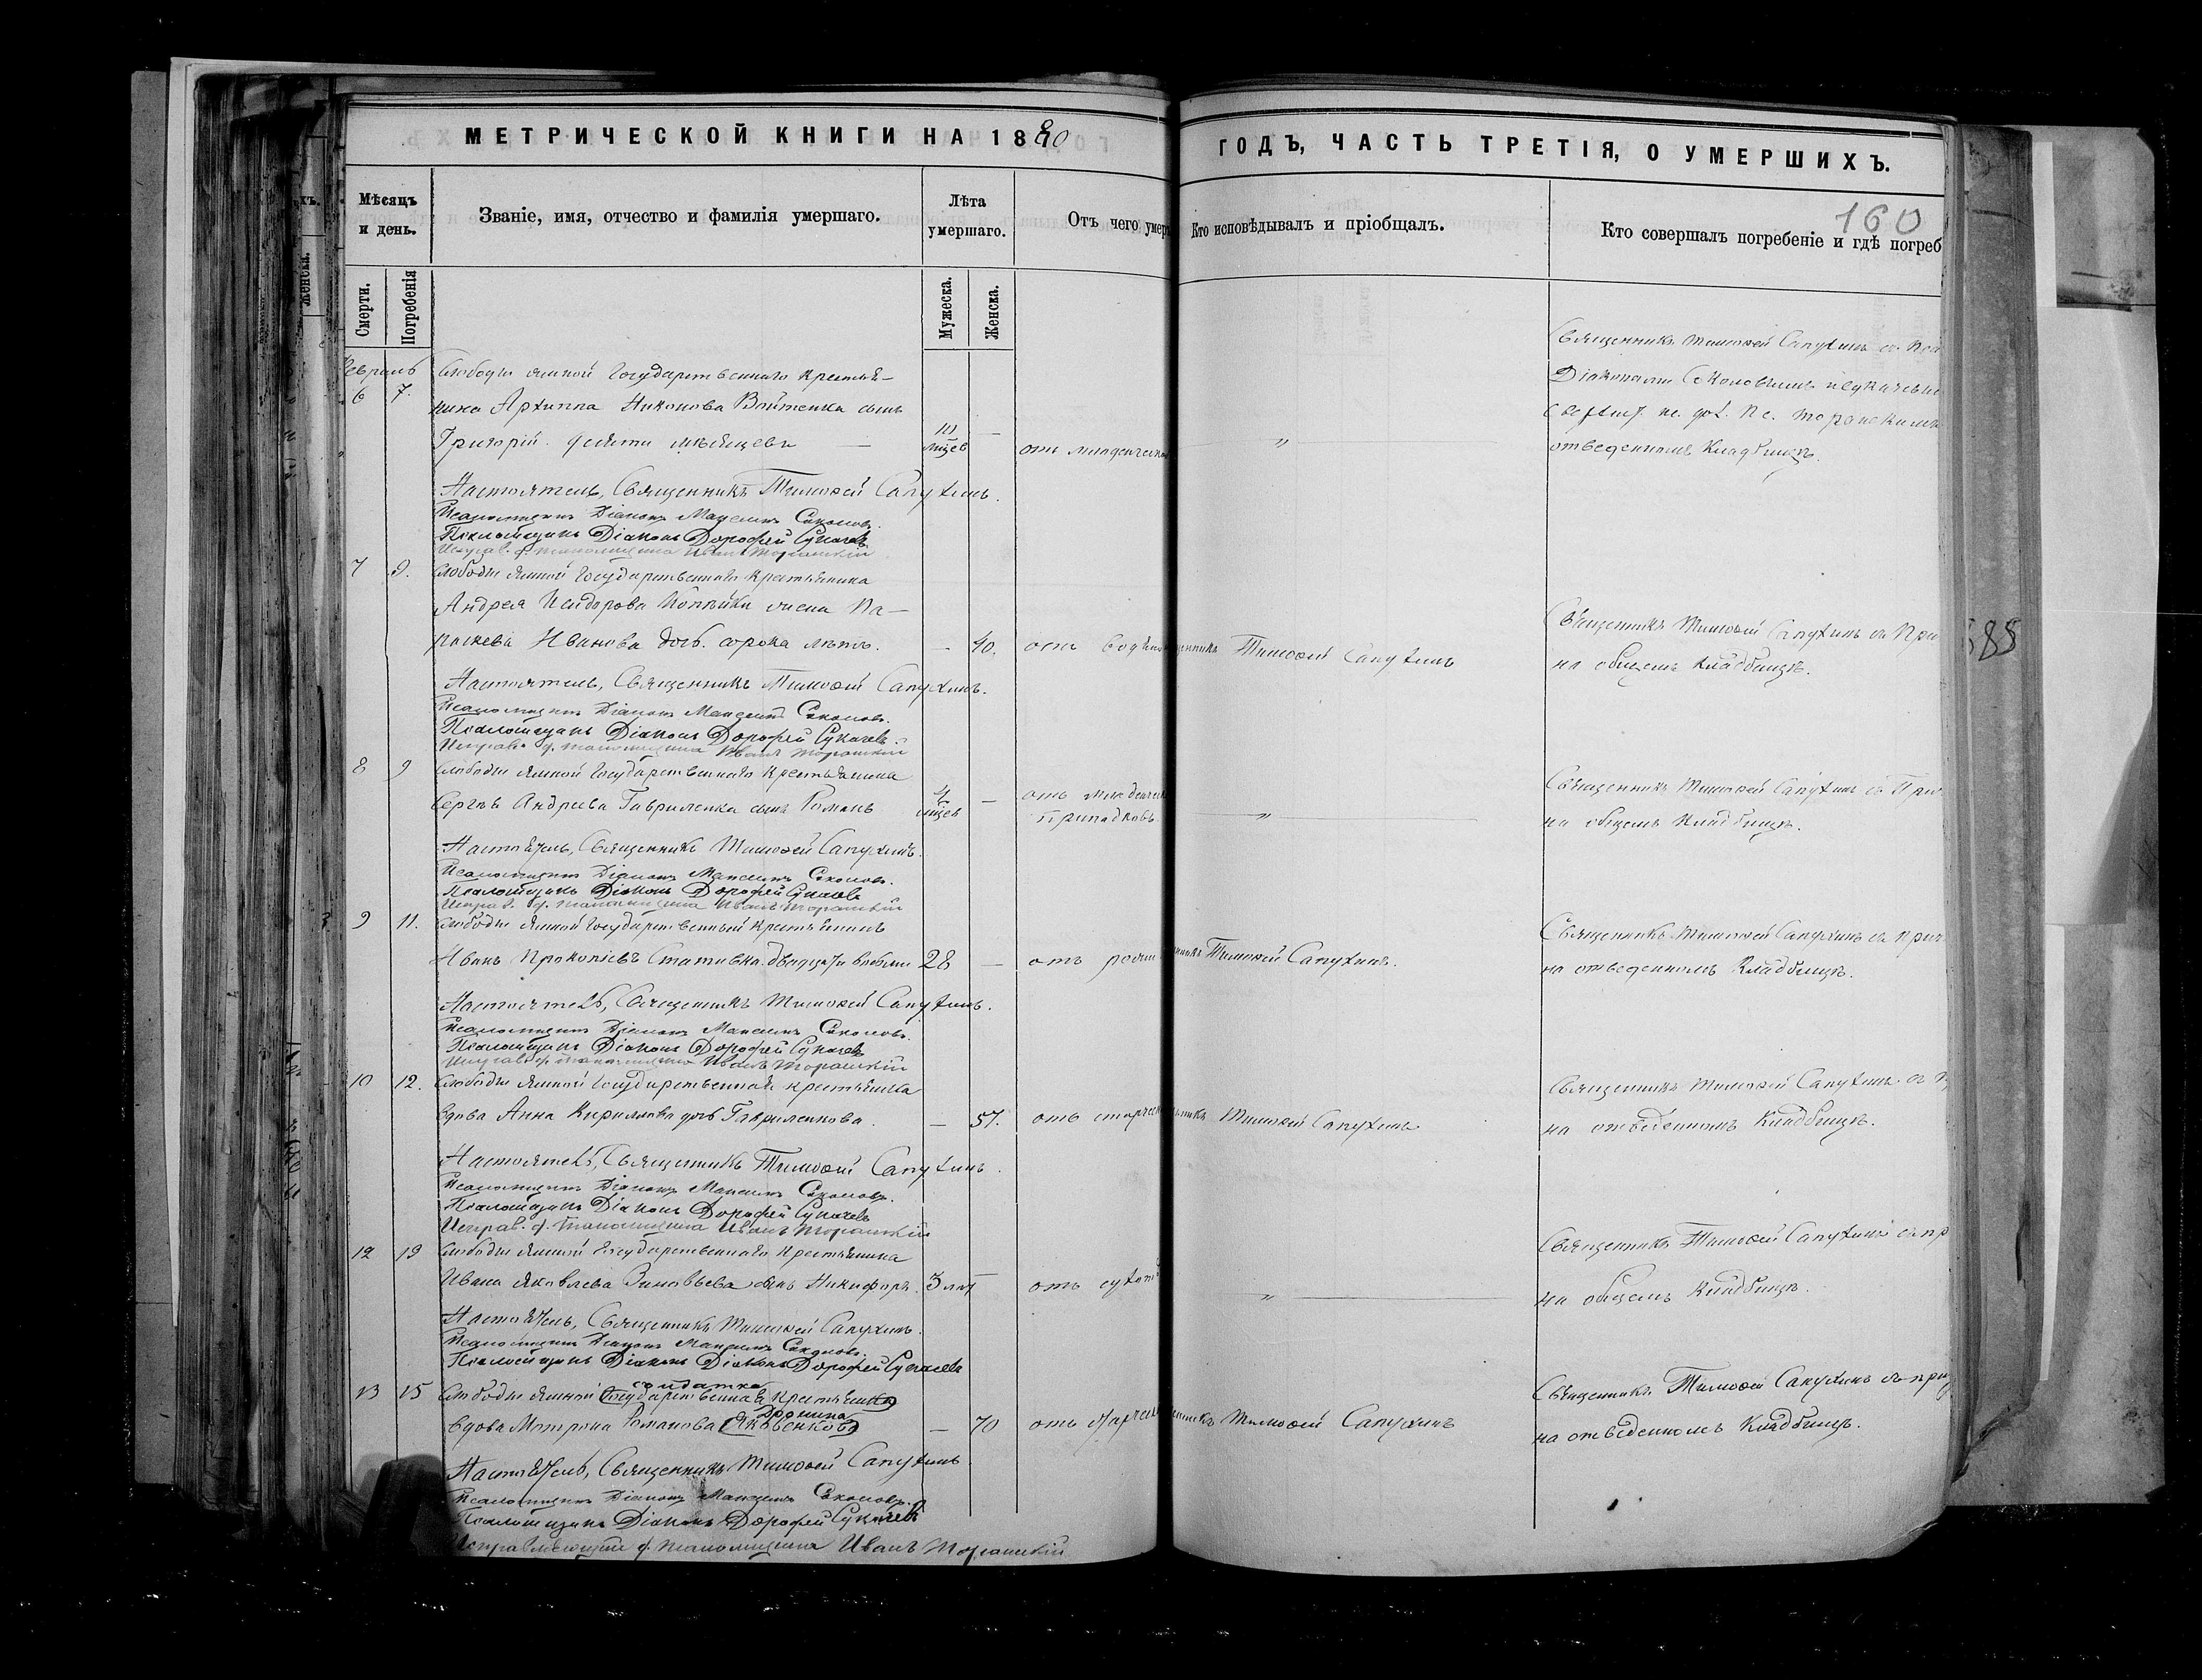 МЕТРИЧЕСКОЙ КНИГИ НА 1880
ГОДЪ, ЧАСТЬ ТРЕТІЯ, О УМЕРШИХЪ.
160
Мѣсяцъ и день.
Званіе, имя, отчество и фамилія умершаго.
Лѣта умершаго.
Отъ чего умер
Кто исповѣдывалъ и пріобщалъ.
Кто совершалъ погребеніе и гдѣ погреб
Смерти.
Погребенія
Мужеска.
Женска.
Февраль
6 7. Слободы Ямной Государственнаго Крестья-
нина Архиппа Никонова Войтенка сынъ
Григорій десяти мѣсяцевъ — 10 мцев — отъ младенческ „
Священникъ Тимоѳей Сапухинъ съ
Діакономъ Соколовымъ
отведенномъ Кладбищѣ.
Настоятель, Священникъ Тимоѳей Сапухинъ.
Псаломщикъ Діаконъ Максимъ Соколовъ.
Псаломщикъ Діаконъ Дорофей Сукачевъ
Исправ. д. псаломщика Иванъ Торанскій
7 9. Слободы Ямной Государственнаго Крестьянина
Андрея Исидорова Коппѣйки жена Па-
раскева Иванова доч. сорока лѣтъ. — 40. отъ водян
щенникъ Тимоѳей Сапухинъ
Священникъ Тимоѳей Сапухинъ съ При
на общемъ Кладбищѣ.
Настоятель, Священникъ Тимоѳей Сапухинъ.
Псаломщикъ Діаконъ Максимъ Соколовъ.
Псаломщикъ Діаконъ Дорофей Сукачевъ.
Исправ. д. псаломщика Иванъ Торанскій
8 9 Слободы Ямной Государственнаго Крестьянина
Сергѣя Андреева Гавриленка сынъ Романъ 4 мцев — отъ младенческ
припадковъ „
Священникъ Тимоѳей Сапухинъ съ При
на общемъ Кладбищѣ.
Настоятель, Священникъ Тимоѳей Сапухинъ.
Псаломщикъ Діаконъ Максимъ Соколовъ.
Псаломщикъ Діаконъ Дорофей Сукачевъ
Исправ. д. псаломщика Иванъ Торанскій
9 11. Слободы Ямной Государственный Крестьянинъ
Иванъ Прокопіевъ Стативка двадцати восьми 28 — отъ
нникъ Тимоѳей Сапухинъ.
Священникъ Тимоѳей Сапухинъ съ прич
на отведенномъ Кладбищѣ.
Настоятель, Священникъ Тимоѳей Сапухинъ.
Псаломщикъ Діаконъ Максимъ Соколовъ.
Псаломщикъ Діаконъ Дорофей Сукачевъ
Исправ. д. псаломщика Иванъ Торанскій
10 12. Слободы Ямной Государственная крестьянка
вдова Анна Кириллова доч Гавриленкова. — 57. отъ старческ
щенникъ Тимоѳей Сапухинъ
Священникъ Тимоѳей Сапухинъ съ п
на отведенномъ Кладбищѣ.
Настоятель, Священникъ Тимоѳей Сапухинъ.
Псаломщикъ Діаконъ Максимъ Соколовъ.
Псаломщикъ Діаконъ Дорофей Сукачевъ
Исправ. д. псаломщика Иванъ Торанскій
12 13 Слободы Ямной Государственнаго Крестьянина
Ивана Яковлева Зиновьева сынъ Никифоръ. 3 лѣт отъ сухот „
Священникъ Тимоѳей Сапухинъ съ пр
на общемъ Кладбищѣ.
Настоятель, Священникъ Тимоѳей Сапухинъ.
Псаломщикъ Діаконъ Максимъ Соколовъ.
Псаломщикъ Діаконъ Діаконъ Дорофей Сукачевъ
солдатка
13 15 Слободы Ямной (Государственная Крестьянка)
Дронина
вдова Матрона Романова (Яковенкова) — 70 отъ старческ
щенникъ Тимоѳей Сапухинъ
Священникъ Тимоѳей Сапухинъ съ прич
на отведенномъ Кладбищѣ.
Настоятель, Священникъ Тимоѳей Сапухинъ
Псаломщикъ Діаконъ Максимъ Соколовъ.
Псаломщикъ Діаконъ Дорофей Сукачевъ
Исправляющій д. псаломщика Иванъ Торанскій